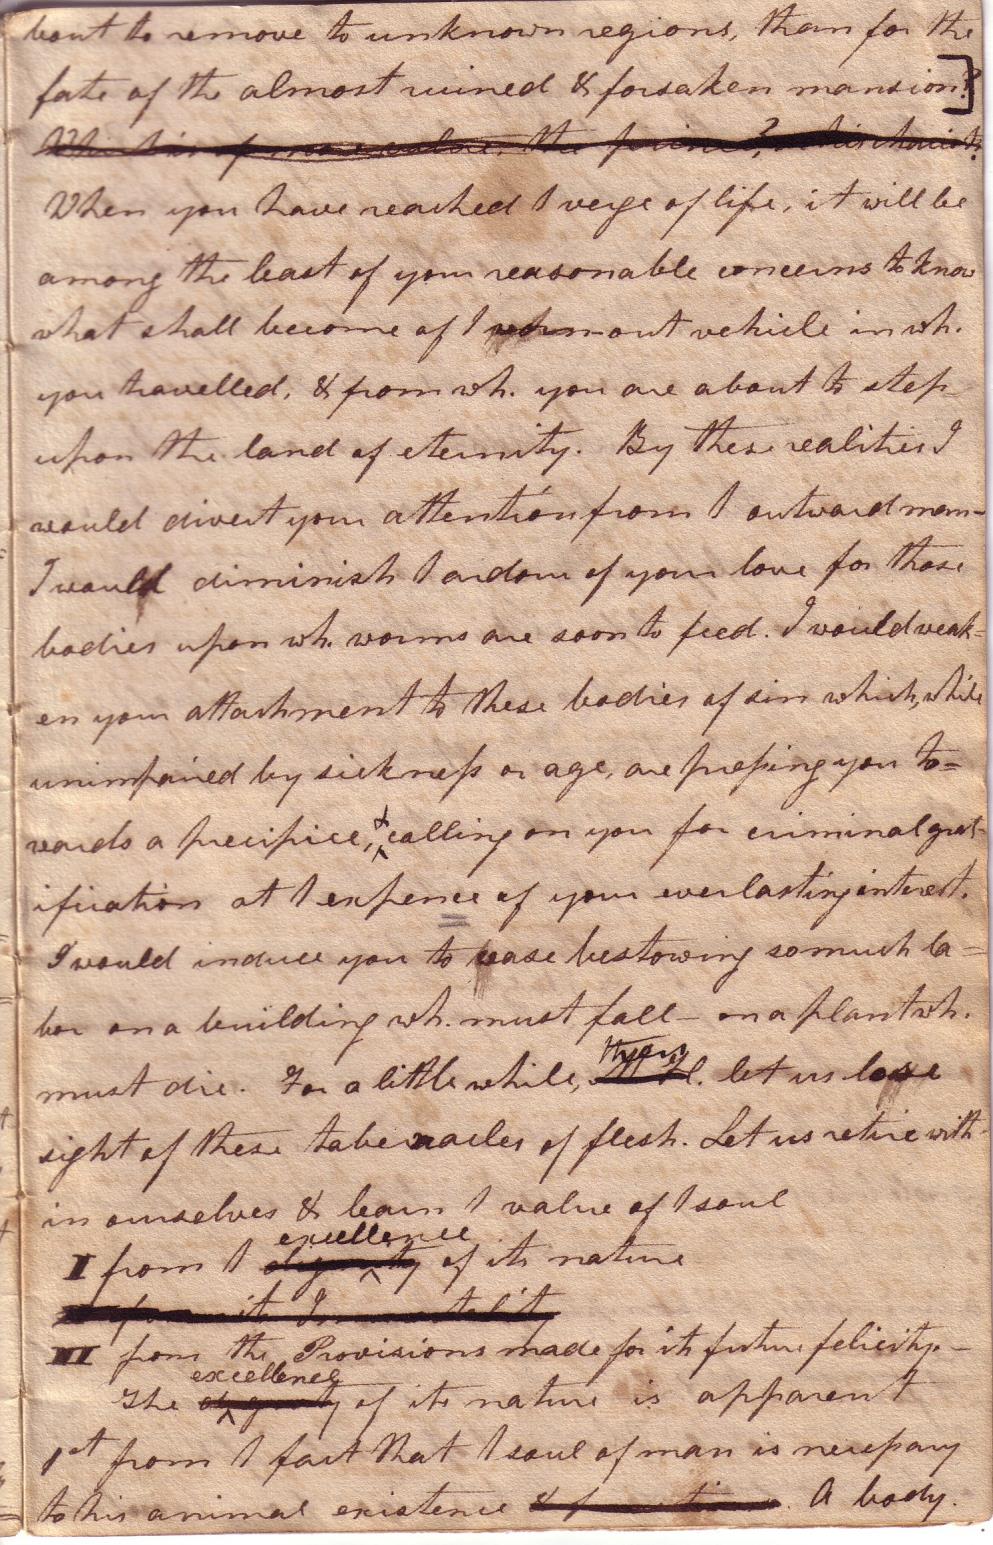 bout to remove to unknown regions, than for the
fate of the almost ruined & forsaken mansion?]
of more value, the prince?,
When you have reached I verge of life, it will be
among the least of your reasonable concerns to know
what shall become of I wornout vehicle in wh.
you travelled, & from wh. you are about to step
upon the land of eternity. By these realities I
would divert your attention from I outward man-
I would diminish I ardour of your love for those
bodies upon wh. worms are soon to feed. I would weak=
en your attachment to these bodies of sin which, while
unimpaired by sickness or age, are pressing you to=
wards a precipice, & calling on you for criminal grat-
ification at I expence of your everlasting interest.
I would induce you to cease bestowing so much la=
bor on a building wh. must fall - on a plant wh.
then
must die. For a little while, let us lose
sight of these tabernacles of flesh. Let us retire with-
in ourselves & learn I value of I soul
excellence
I from I dignity of its nature
from its Immortality
III from the Provisions made for its future felicity. -
excellence
The dignity of its nature is apparent
1st from I fact that I soul of man is necessary
to his animal existence & . A body.